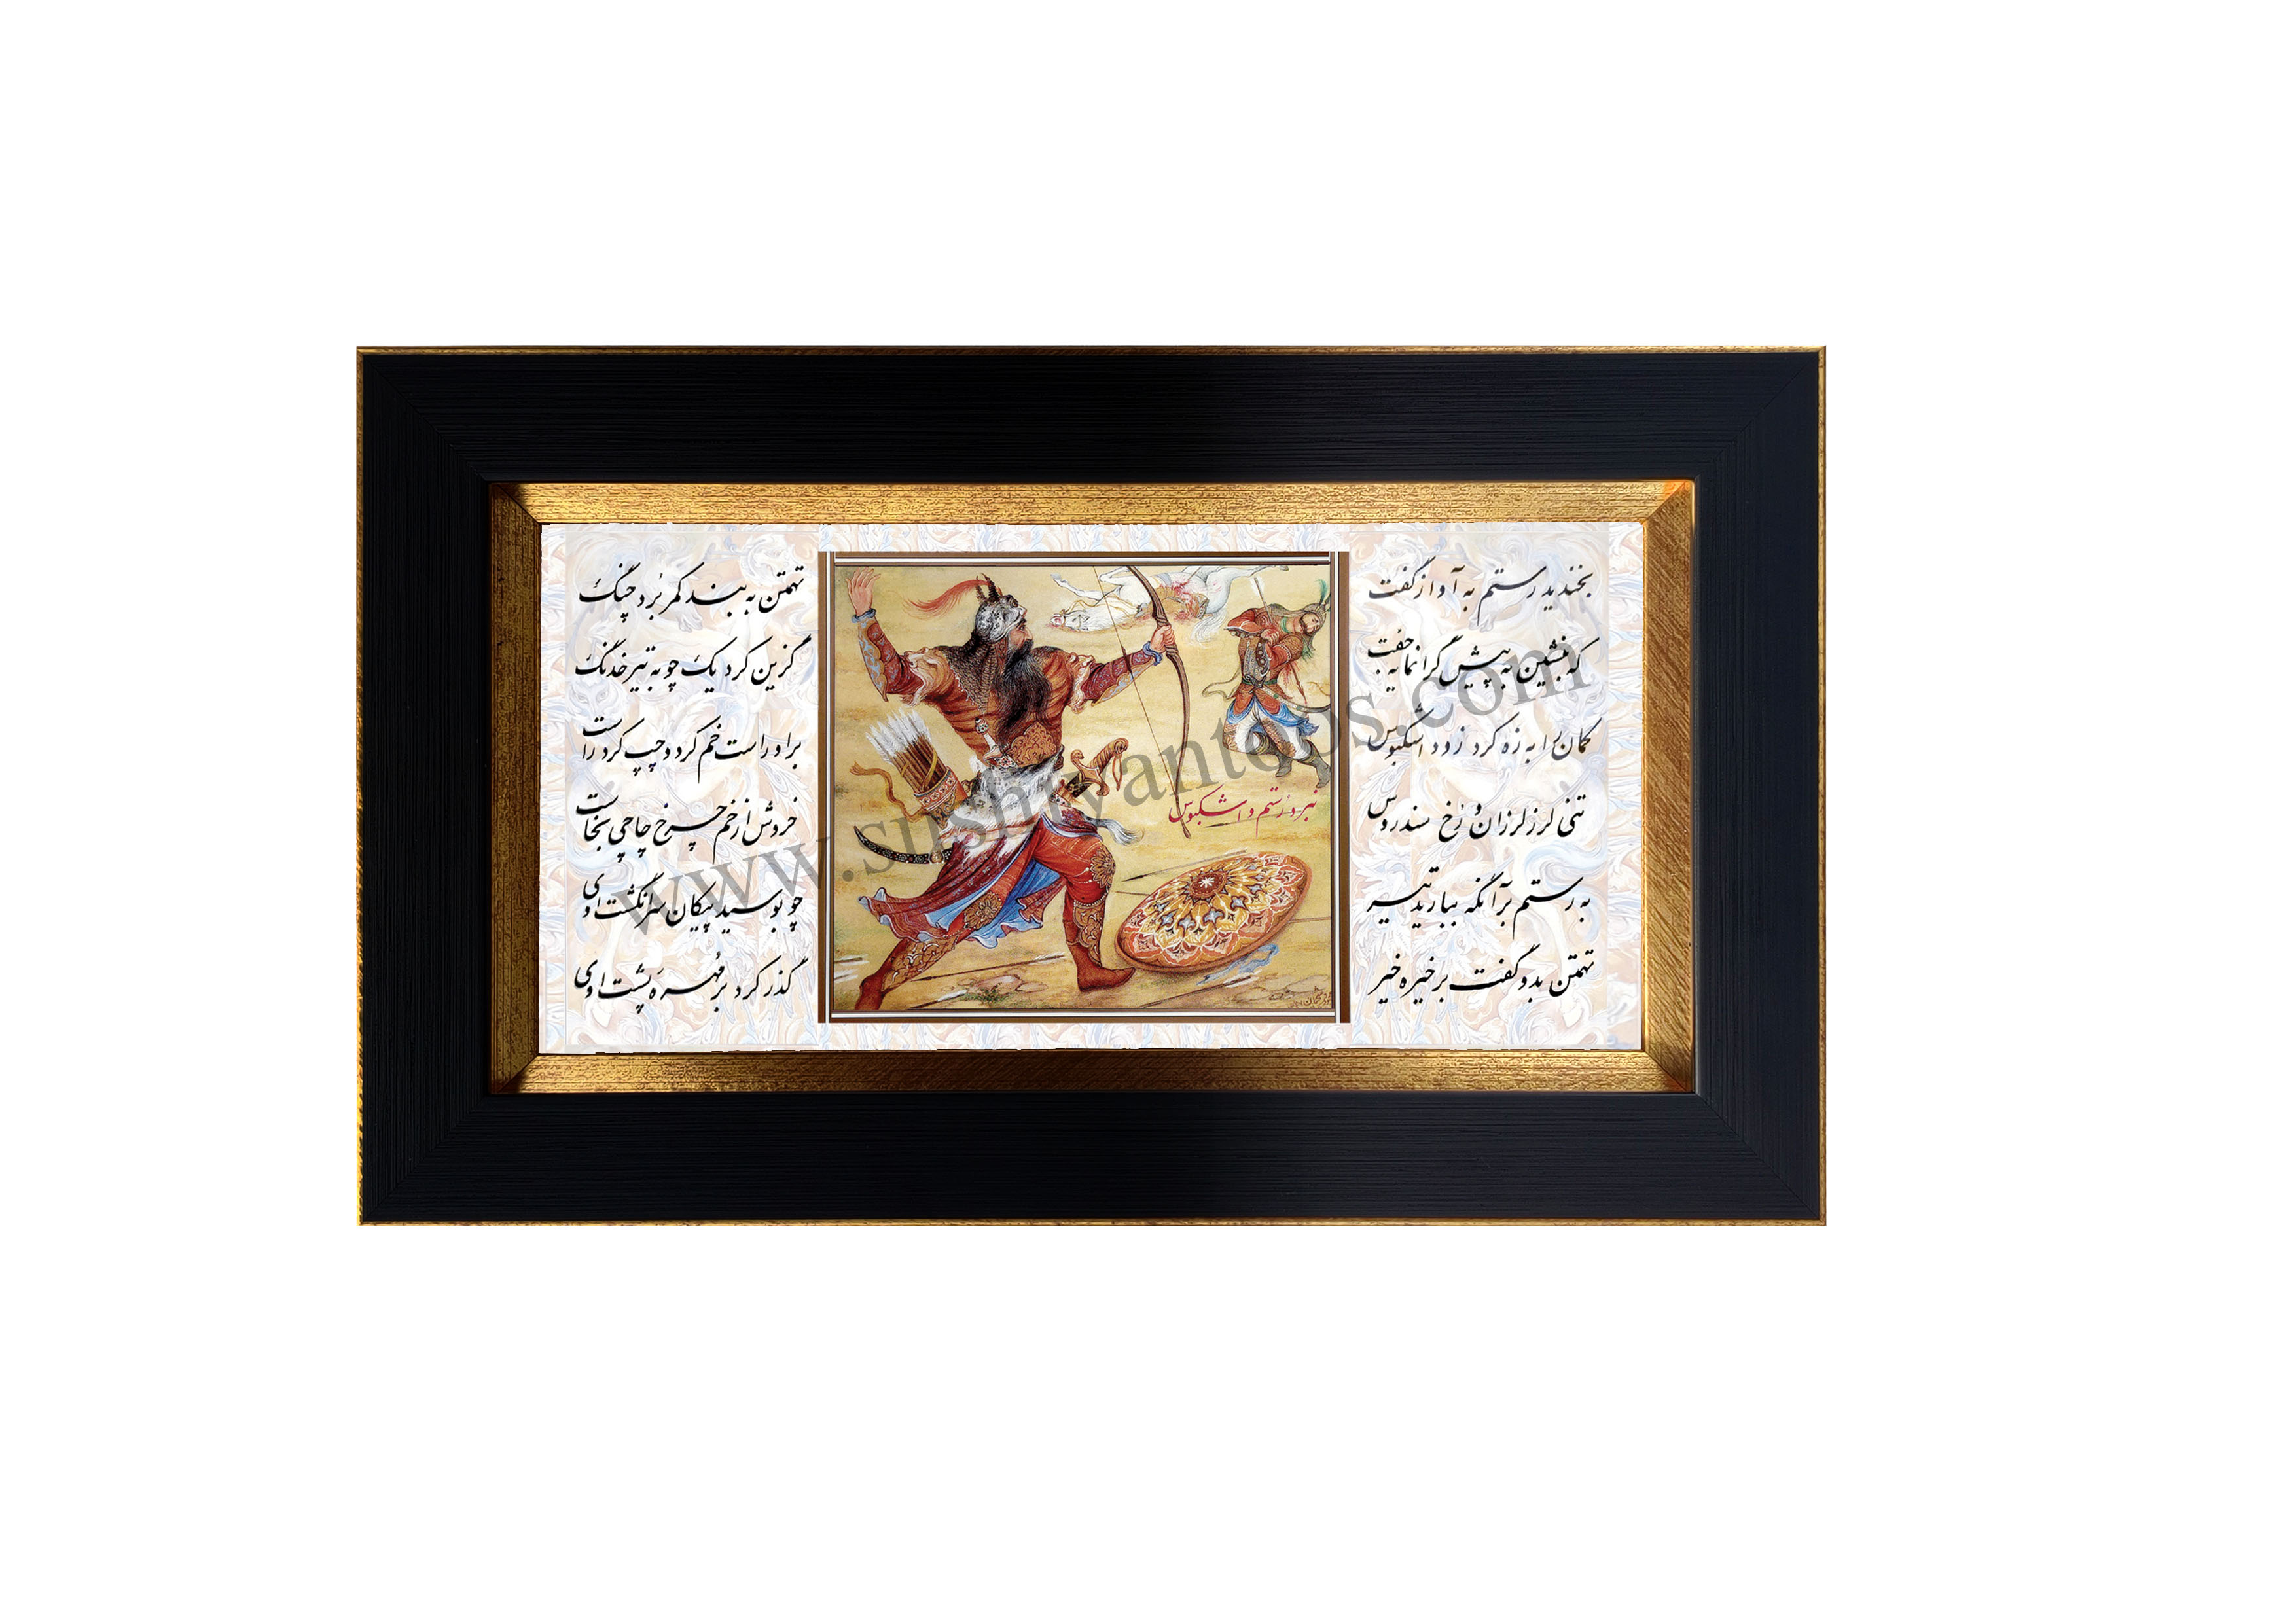 بخندید رستم به آواز گفت
که بنشین به پیش گرانمایه جفت
کمان را به زه کرد زود اشکبوس
تنی لرز لرزان و رُخ سندروس
به رستم بر آنگه ببارید تیر
تهمتن بدو گفت بر خیره خیر
نبرد رستم و اشکبوس
تهمتن به بند کمر بُرد چنگ
گزین کرد یک چوبه تیر خدنگ
برو راست خم کرد و چپ کرد راست
خروش از خم چرخ چاچی بخاست
چو بوسید پیکان سرانگشت اوی
گذر کرد بر مُهره پشت اوی
www.sushiyantoos.com